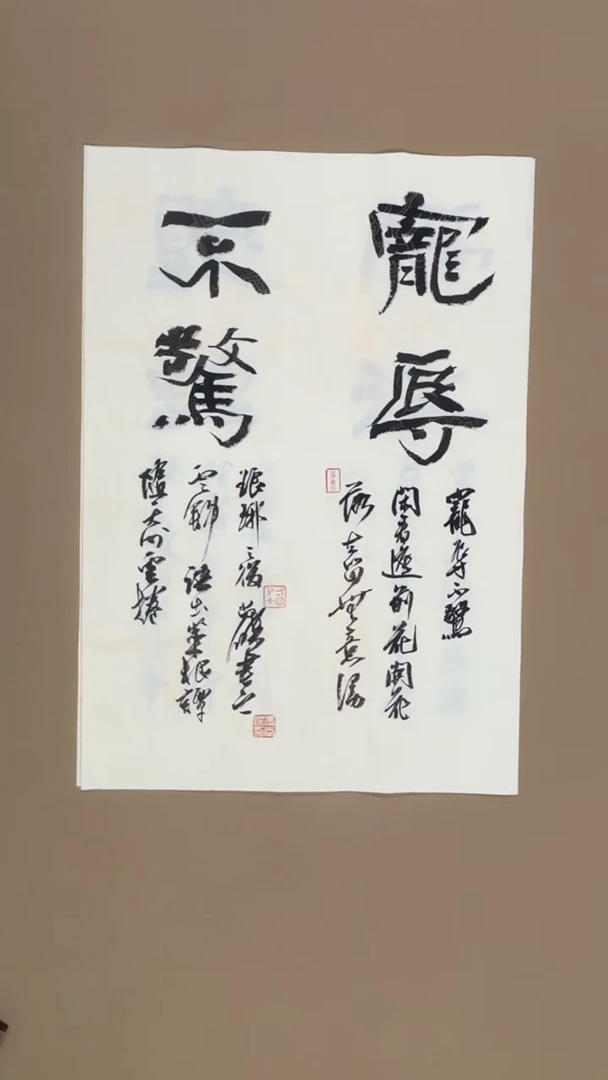 寵辱
不驚
寵辱不驚
閑看庭前花開花
落去留無意漫
隨天外雲捲
雲舒 語出菜根譚
琅琊 書之